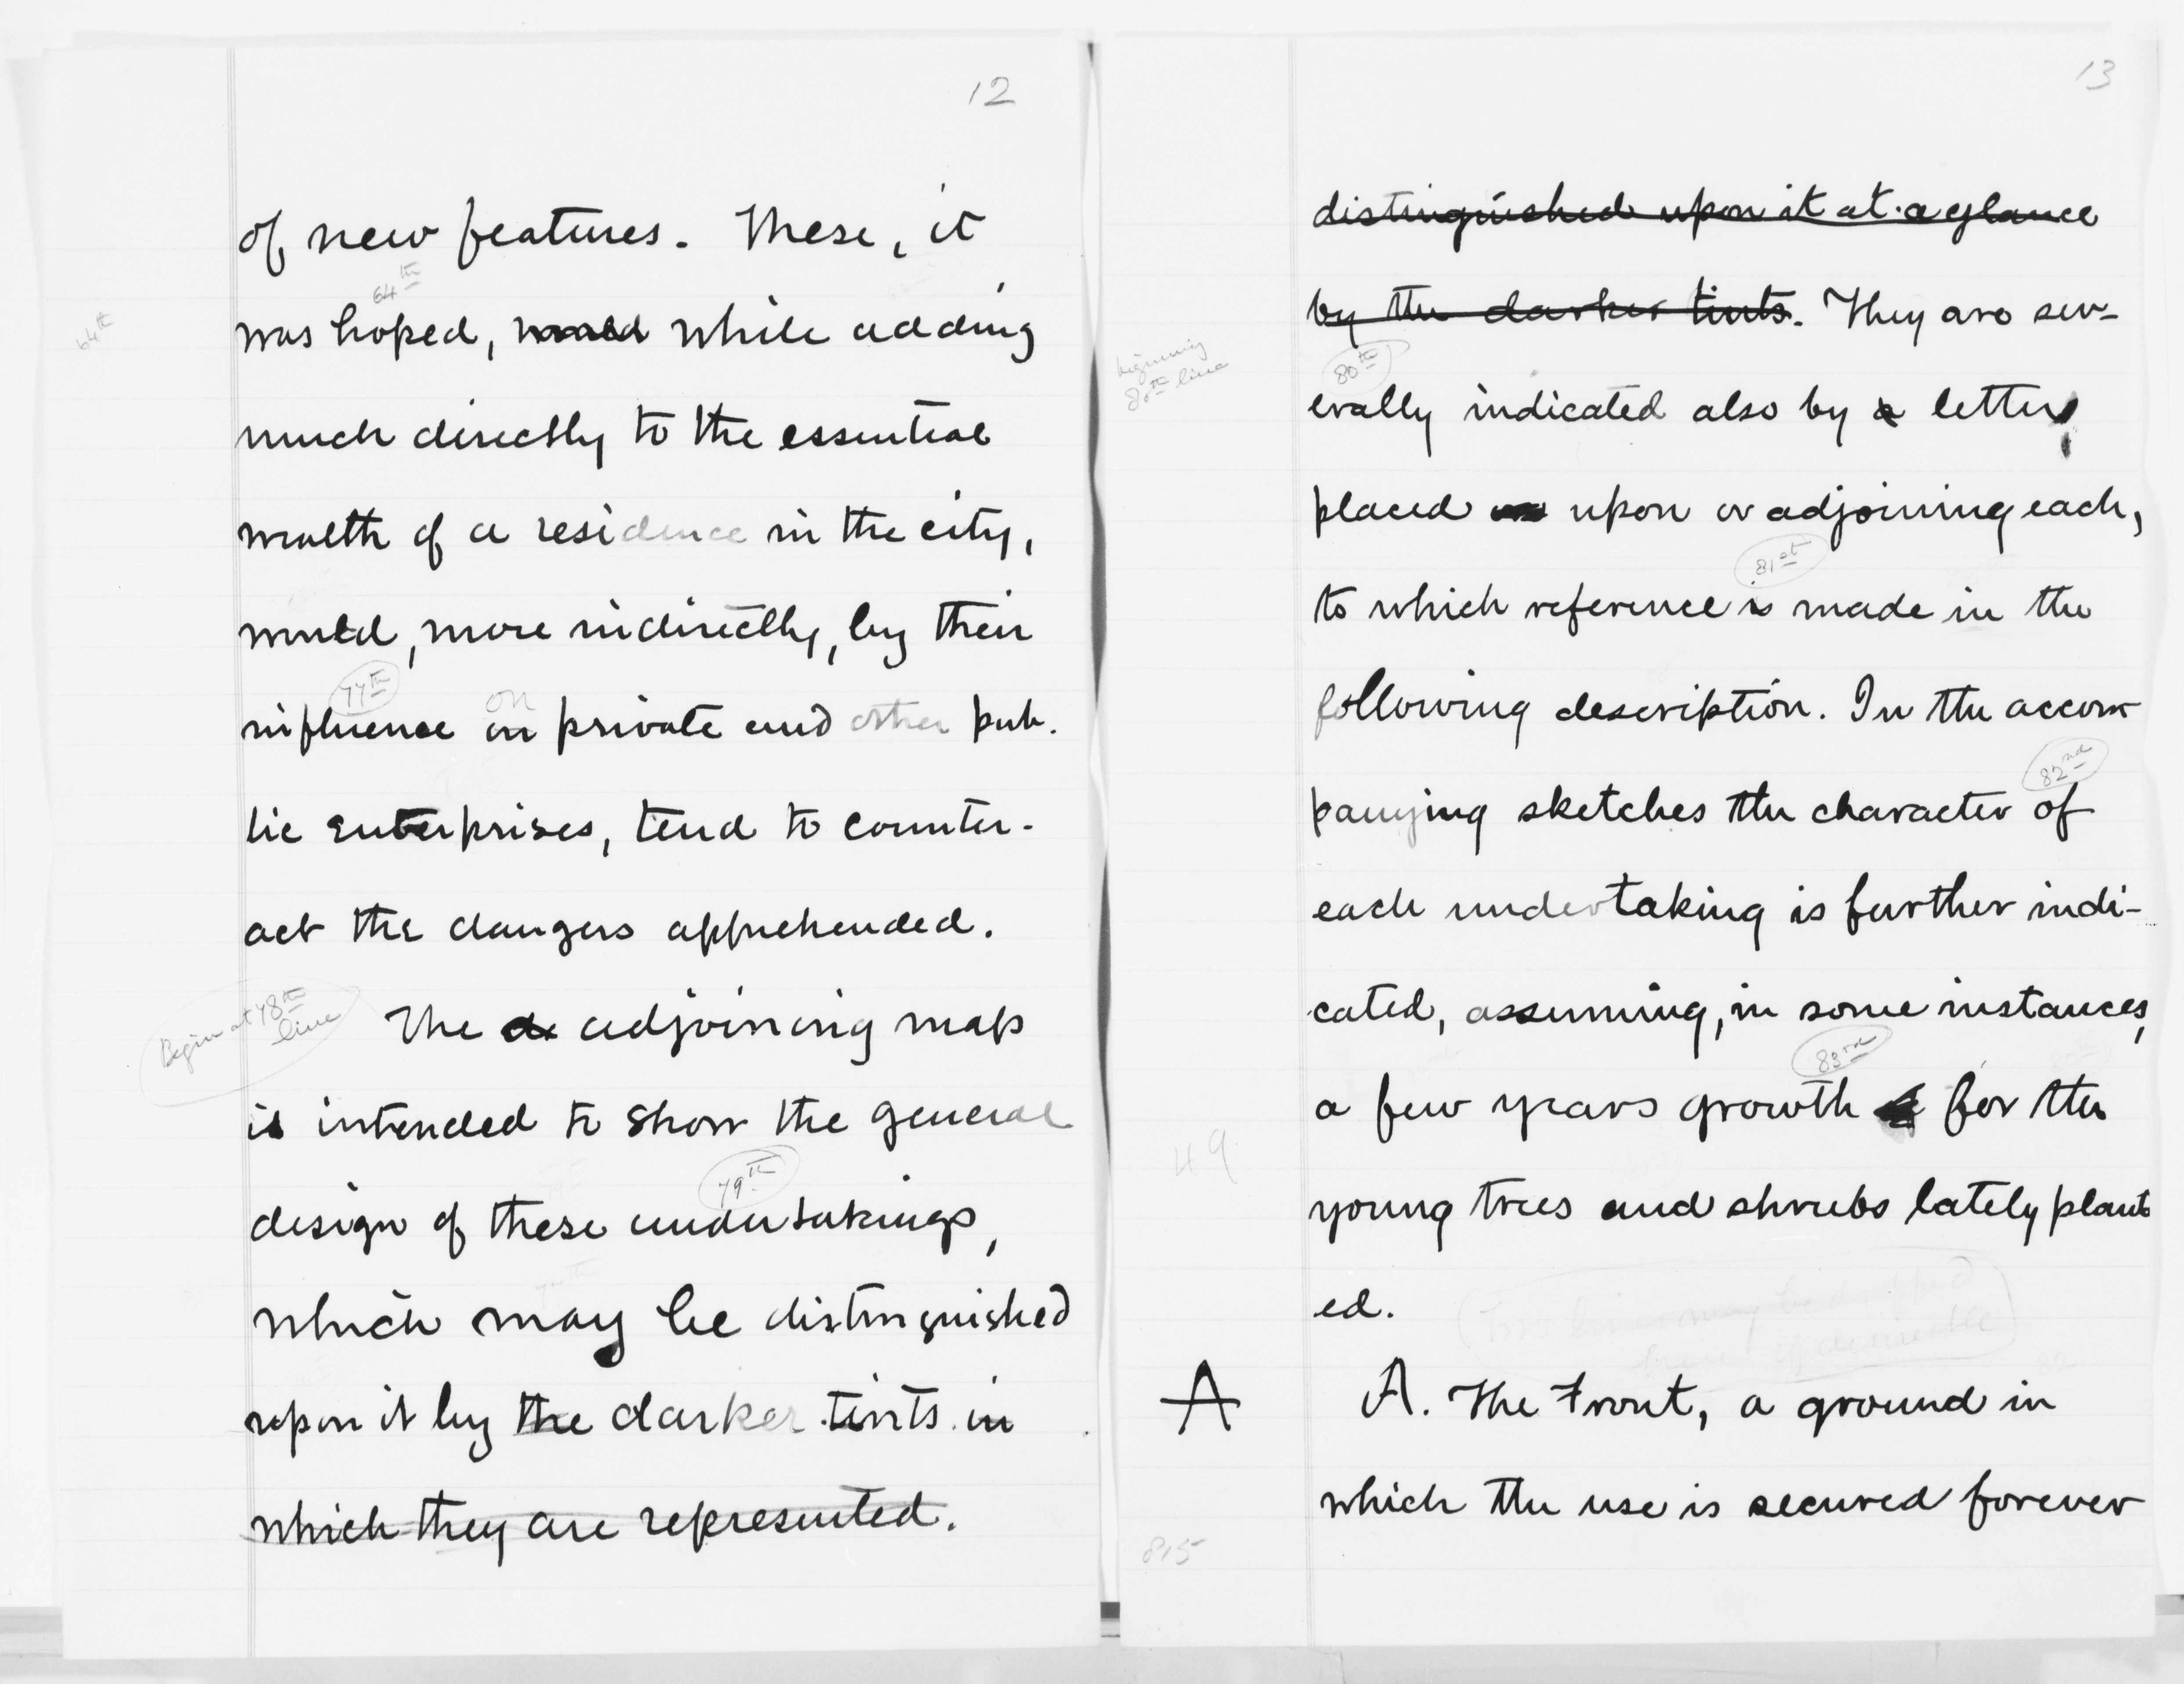 12
of new features. These, it
64th
64th
was hoped, would while adding
much directly to the essential
wealth of a residence in the city,
would, more indirectly, by their
77th
on
influence on private and other pub-
lic enterprises, tend to counter-
act the dangers apprehended.
Begin at 78th
line
The a adjoining map
is intended to show the general
79th
design of these undertakings,
which may be distinguished
upon it by the darker tints in
which they are represented.
13
distinguished upon it at a glance
by the darker tints. They are sev-
beginning
80th line
80th
erally indicated also by a letters
placed on upon or adjoining each,
81st
to which reference is made in the
following description. In the accom-
82nd
panying sketches the character of
each undertaking is further indi-
cated, assuming, in some instances,
83rd
a few years growth for the
49
young trees and shrubs lately plant
ed.
Two lines may be dropped
here if desirable
A
A. The Front, a ground in
which the use is secured forever
815